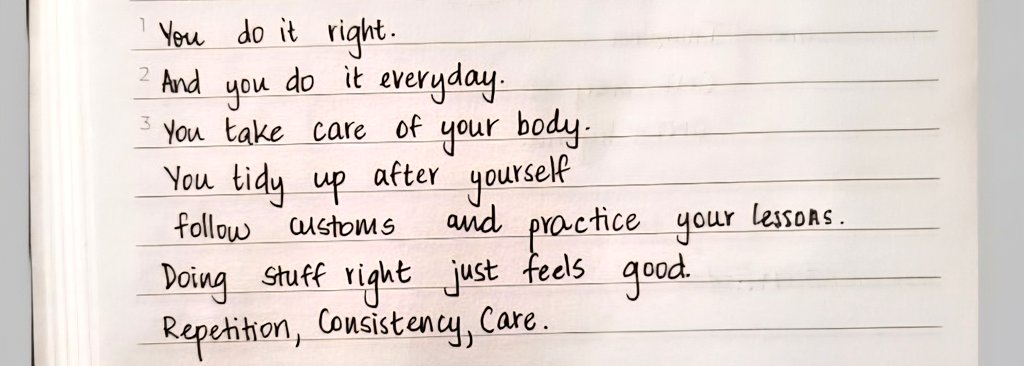 1 You do it right.
2 And you do it everyday.
3 You take care of your body.
You tidy up after yourself
follow customs and practice your lessons.
Doing stuff right just feels good.
Repetition, Consistency, Care.